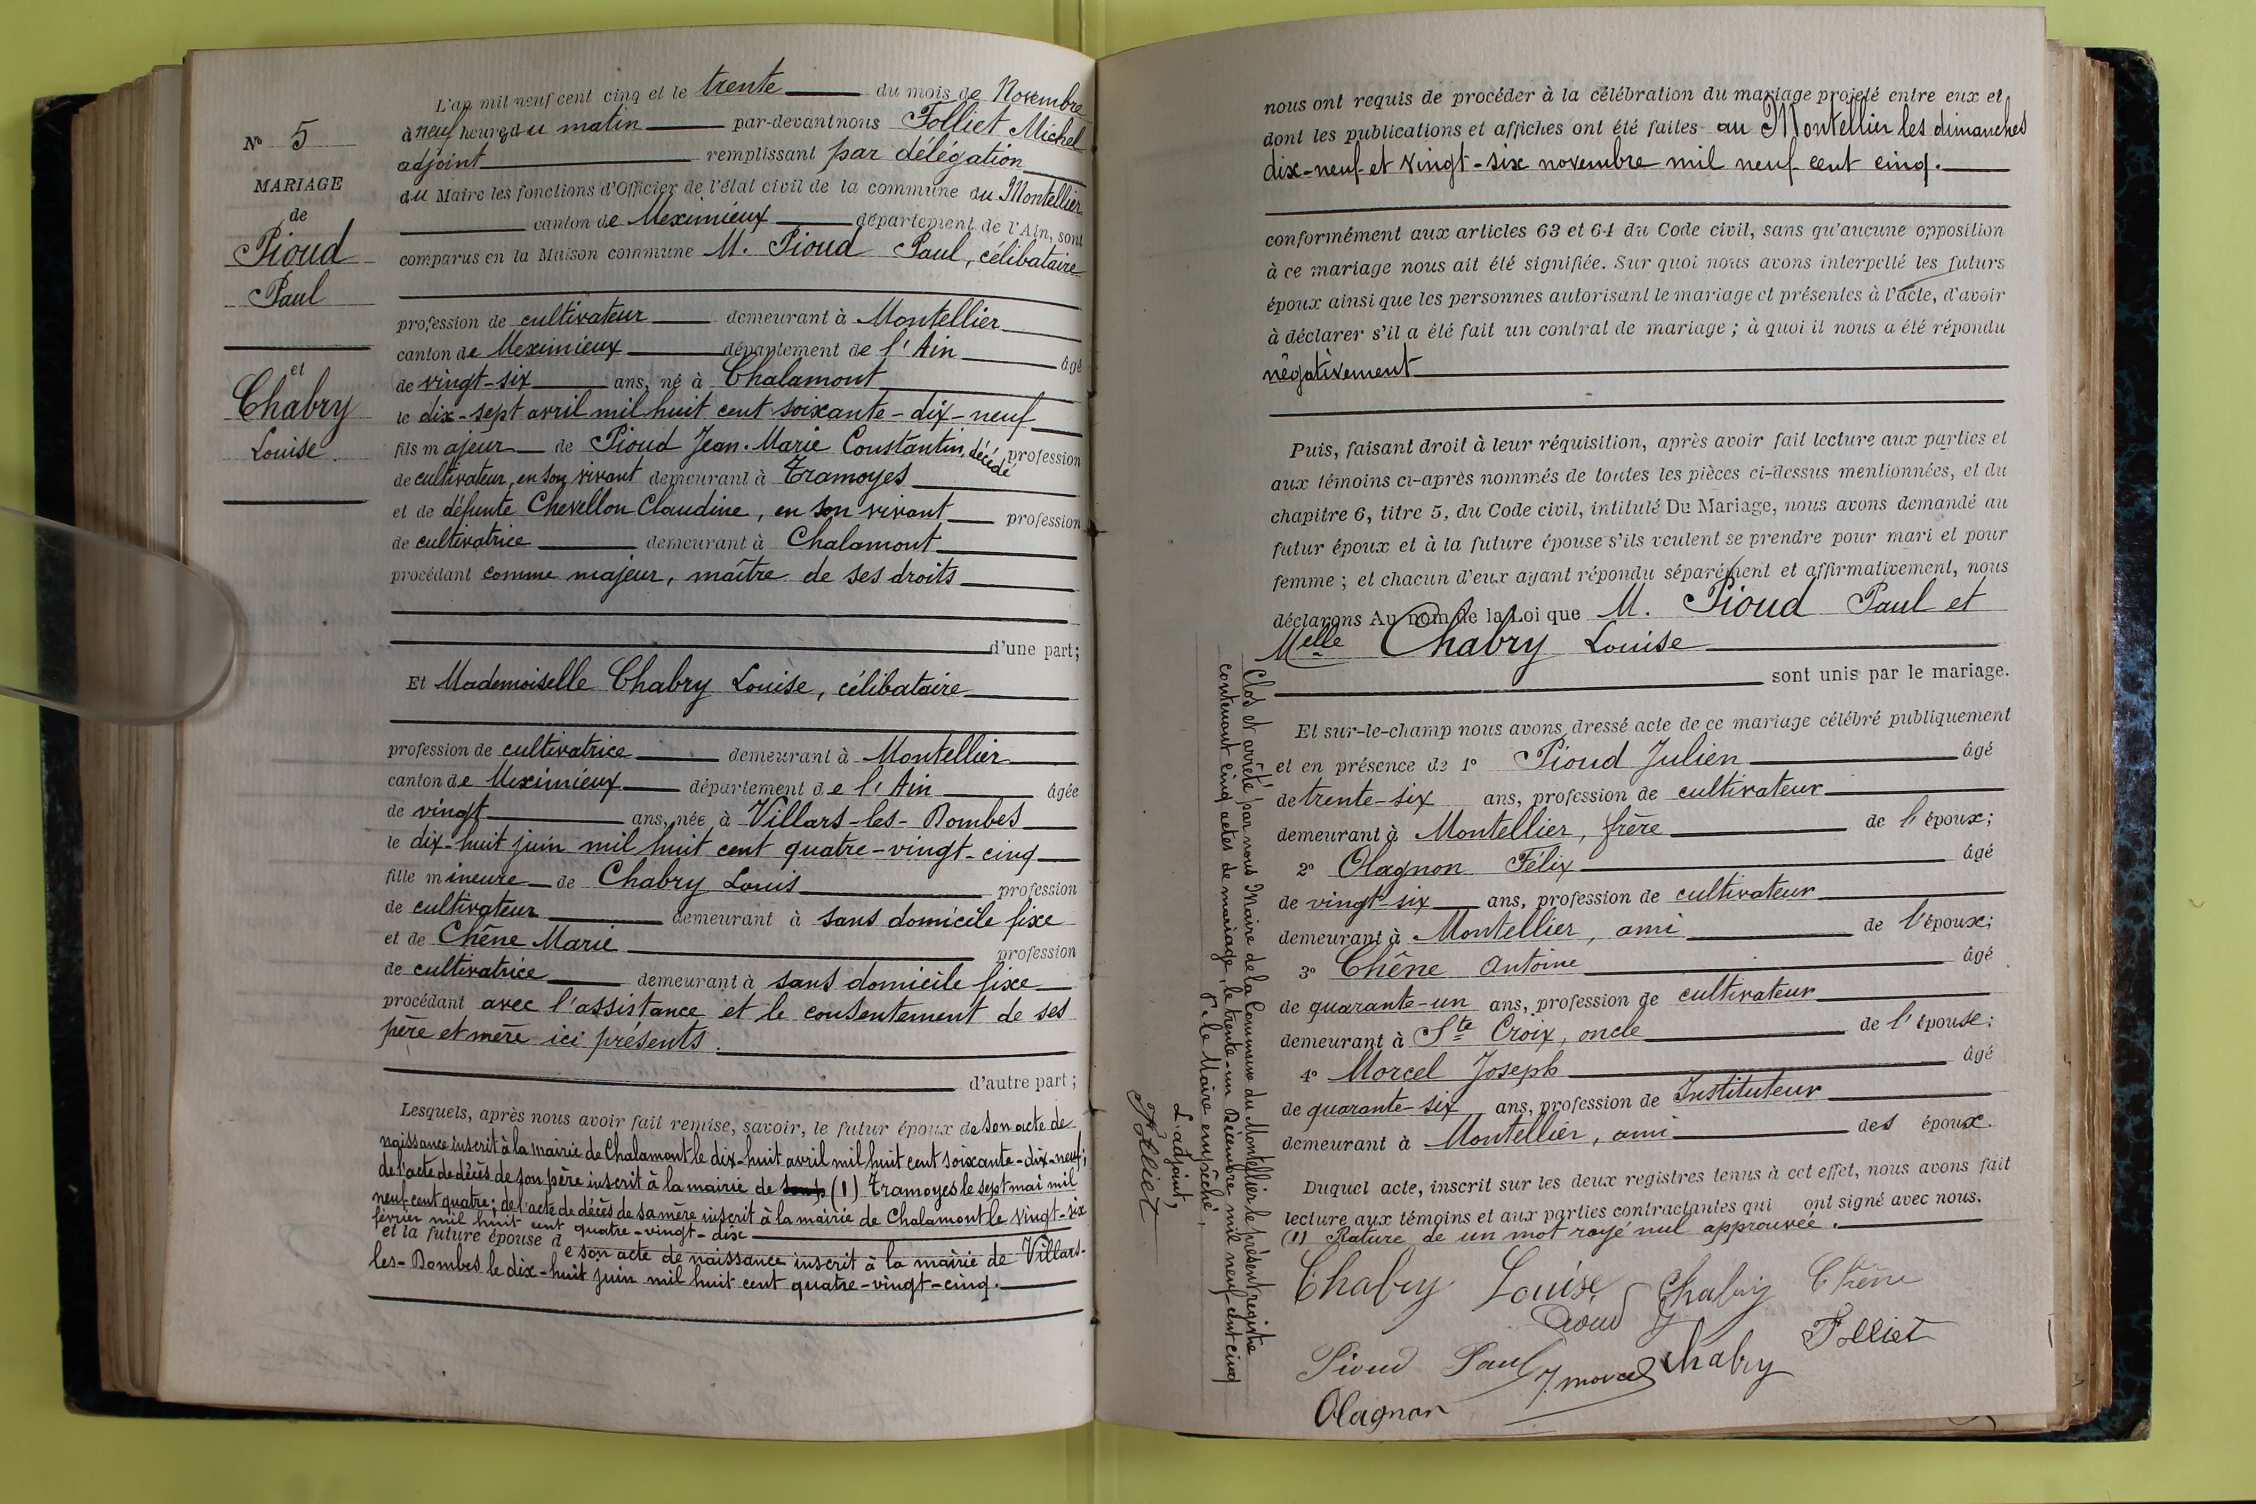 N° 5
MARIAGE
de
Pioud
Paul
et
Chabry
Louise
L'an mil neuf cent cinq et le trente du mois de Novembre
à neuf heures du matin par-devant nous Folliet Michel
adjoint remplissant par délégation
du Maire les fonctions d'Officier de l'état civil de la commune du Montellier
canton de Meximieux département de l'Ain, sont
comparus en la Maison commune M. Pioud Paul, célibataire
profession de cultivateur demeurant à Montellier
canton de Meximieux département de l'Ain âgé
de vingt-six ans, né à Chalamont
le dix-sept avril mil huit cent soixante-dix-neuf
fils majeur de Pioud Jean-Marie Constantin, décédé profession
de cultivateur, en son vivant demeurant à Tramoyes
et de défunte Chevellon Claudine, en son vivant profession
de cultivatrice demeurant à Chalamont
procédant comme majeur, maître de ses droits
d'une part;
Et Mademoiselle Chabry Louise, célibataire
profession de cultivatrice demeurant à Montellier
canton de Meximieux département de l'Ain âgée
de vingt ans, née à Villars-les-Dombes
le dix-huit juin mil huit cent quatre-vingt-cinq
fille mineure de Chabry Louis profession
de cultivateur demeurant à sans domicile fixe
et de Chêne Marie profession
de cultivatrice demeurant à sans domicile fixe
procédant avec l'assistance et le consentement de ses
père et mère ici présents.
d'autre part;
Lesquels, après nous avoir fait remise, savoir, le futur époux de son acte de
naissance inscrit à la mairie de Chalamont le dix-huit avril mil huit cent soixante-dix-neuf;
de l'acte de décès de son père inscrit à la mairie de (1) Tramoyes le sept mai mil
neuf cent quatre; de l'acte de décès de sa mère inscrit à la mairie de Chalamont le vingt-six
février mil huit cent quatre-vingt-dix
et la future épouse de son acte de naissance inscrit à la mairie de Villars-
les-Dombes le dix-huit juin mil huit cent quatre-vingt-cinq.
nous ont requis de procéder à la célébration du mariage projeté entre eux et
dont les publications et affiches ont été faites au Montellier les dimanches
dix-neuf et vingt-six novembre mil neuf cent cinq.
conformément aux articles 63 et 64 du Code civil, sans qu'aucune opposition
à ce mariage nous ait été signifiée. Sur quoi nous avons interpellé les futurs
époux ainsi que les personnes autorisant le mariage et présentes à l'acte, d'avoir
à déclarer s'il a été fait un contrat de mariage; à quoi il nous a été répondu
négativement
Puis, faisant droit à leur réquisition, après avoir fait lecture aux parties et
aux témoins ci-après nommés de toutes les pièces ci-dessus mentionnées, et du
chapitre 6, titre 5, du Code civil, intitulé Du Mariage, nous avons demandé au
futur époux et à la future épouse s'ils veulent se prendre pour mari et pour
femme; et chacun d'eux ayant répondu séparément et affirmativement, nous
déclarons Au nom de la Loi que M. Pioud Paul et
Melle Chabry Louise
sont unis par le mariage.
Et sur-le-champ nous avons dressé acte de ce mariage célébré publiquement
et en présence de 1° Pioud Julien âgé
de trente-six ans, profession de cultivateur
demeurant à Montellier, frère de l'époux;
2° Olagnon Félix âgé
de vingt-six ans, profession de cultivateur
demeurant à Montellier, ami de l'époux;
3° Chêne Antoine âgé
de quarante-un ans, profession de cultivateur
demeurant à Ste Croix, oncle de l'épouse;
4° Morcel Joseph âgé
de quarante-six ans, profession de Instituteur
demeurant à Montellier, ami des époux.
Duquel acte, inscrit sur les deux registres tenus à cet effet, nous avons fait
lecture aux témoins et aux parties contractantes qui ont signé avec nous.
(1) Rature de un mot rayé nul approuvée.
Chabry Louise Chabry Chêne
Pioud
Folliet
Pioud Paul J. Morcel Chabry
Olagnon
Clos et arrêté par nous Maire de la Commune du Montellier le présent registre
contenant cinq actes de mariage, le trente-un Décembre mil neuf cent cinq
Pr le Maire empêché,
L'adjoint,
Folliet